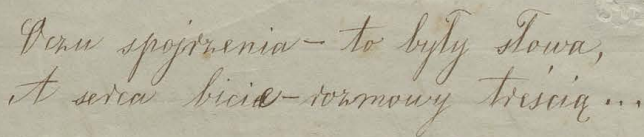 Oczu spojrzenia – to były słowa,
A serca bicie – rozmowy treścią...